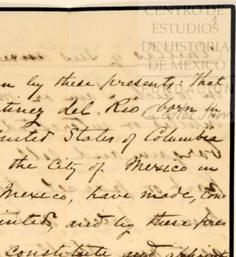 CENTRO DE
ESTUDIOS
DE HISTORIA
DE MÉXICO
n by these presents: that
tiney del Rio born in
nited States of Columbia
the City of Mexico in
Mexico, have made, con
inted, and by these pres
constitute and appoint